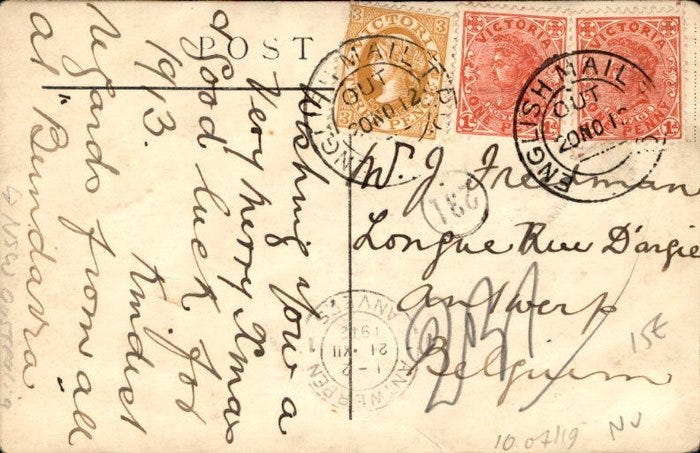 POST
Wishing you a
very merry Xmas
& good luck for
1913. Kindest
regards from all
at "Bundarra"
VICTORIA
3 3
PENCE
VICTORIA
ONE PENNY
1D 1D
VICTORIA
PENNY
1D
ENGLISH MAIL T.P.O.
OUT
20 NO 12
ENGLISH MAIL
OUT
20 NO 12
W. J. Freeman
Longue Rue D'argile
Antwerp
Belgium
231
ANTWERPEN 1
1-2
21 XII
1912
ANVERS
15€
NV
10.07/19